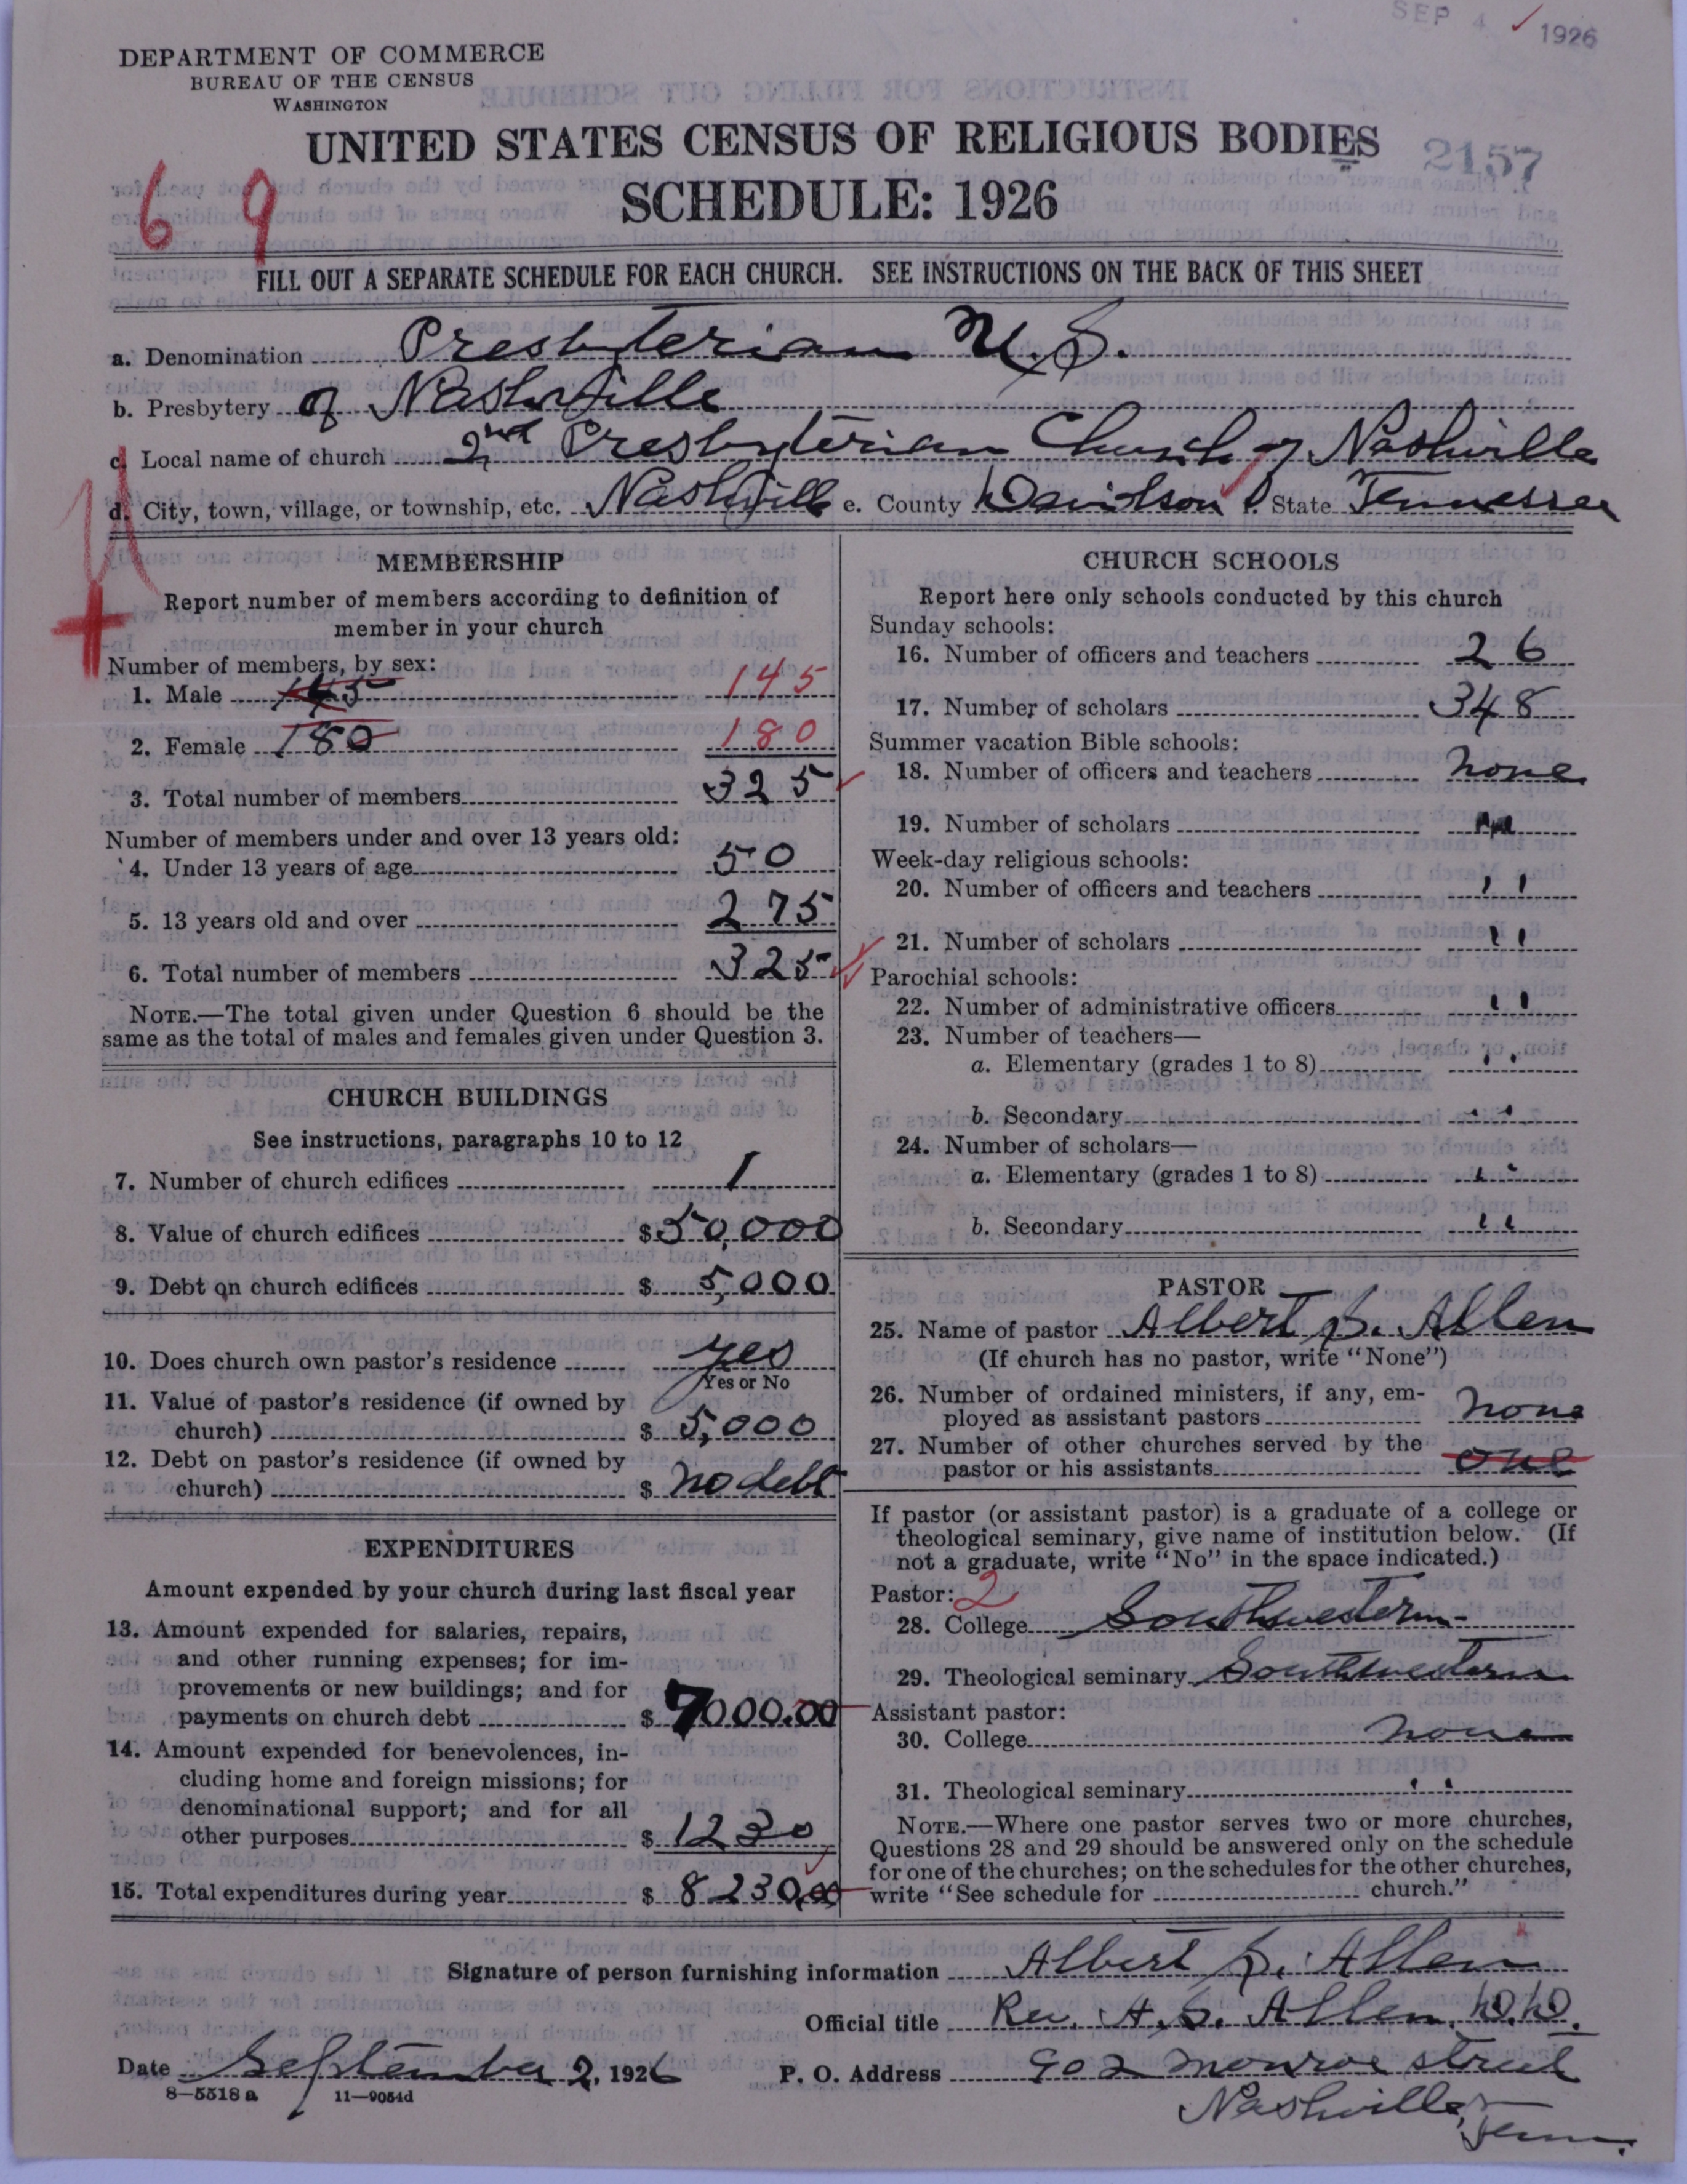 SEP 4 1926
DEPARTMENT OF COMMERCE
BUREAU OF THE CENSUS
WASHINGTON
UNITED STATES CENSUS OF RELIGIOUS BODIES
2157
SCHEDULE: 1926
6 9
FILL OUT A SEPARATE SCHEDULE FOR EACH CHURCH. SEE INSTRUCTIONS ON THE BACK OF THIS SHEET
a. Denomination Presbyterian U.S.
b. Presbytery of Nashville
c. Local name of church 2nd Presbyterian Church of Nashville
d. City, town, village, or township, etc. Nashville e. County Davidson f. State Tennessee
MEMBERSHIP
Report number of members according to definition of
member in your church
Number of members, by sex:
1. Male 145 145
2. Female 180 180
3. Total number of members 325
Number of members under and over 13 years old:
4. Under 13 years of age 50
5. 13 years old and over 275
6. Total number of members 325
NOTE.—The total given under Question 6 should be the
same as the total of males and females given under Question 3.
CHURCH BUILDINGS
See instructions, paragraphs 10 to 12
7. Number of church edifices 1
8. Value of church edifices $50,000
9. Debt on church edifices $ 5,000
10. Does church own pastor's residence yes
Yes or No
11. Value of pastor's residence (if owned by
church) $ 5,000
12. Debt on pastor's residence (if owned by
church) $ no debt
EXPENDITURES
Amount expended by your church during last fiscal year
13. Amount expended for salaries, repairs,
and other running expenses; for im-
provements or new buildings; and for
payments on church debt $ 7000.00
14. Amount expended for benevolences, in-
cluding home and foreign missions; for
denominational support; and for all
other purposes $ 1230
15. Total expenditures during year $ 8230.00
CHURCH SCHOOLS
Report here only schools conducted by this church
Sunday schools:
16. Number of officers and teachers 26
17. Number of scholars 348
Summer vacation Bible schools:
18. Number of officers and teachers none
19. Number of scholars
Week-day religious schools:
20. Number of officers and teachers " "
21. Number of scholars " "
Parochial schools:
22. Number of administrative officers " "
23. Number of teachers—
a. Elementary (grades 1 to 8) " "
b. Secondary " "
24. Number of scholars—
a. Elementary (grades 1 to 8) " "
b. Secondary " "
PASTOR
25. Name of pastor Albert S. Allen
(If church has no pastor, write "None")
26. Number of ordained ministers, if any, em-
ployed as assistant pastors none
27. Number of other churches served by the
pastor or his assistants one
If pastor (or assistant pastor) is a graduate of a college or
theological seminary, give name of institution below. (If
not a graduate, write "No" in the space indicated.)
Pastor: 2
28. College Southwestern
29. Theological seminary Southwestern
Assistant pastor:
30. College none
31. Theological seminary " "
NOTE.—Where one pastor serves two or more churches,
Questions 28 and 29 should be answered only on the schedule
for one of the churches; on the schedules for the other churches,
write "See schedule for church."
Signature of person furnishing information Albert S. Allen
Official title Rev. A. S. Allen, D.D.
Date September 2, 1926 P. O. Address 902 Monroe street
8—5518a 11—9054d
Nashville, Tenn.